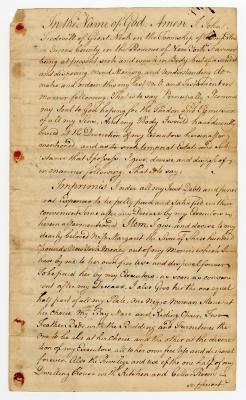 In the Name of God, Amen I John
Treadwell of Great Neck in the Township of
in Queens County in the Province of New York Farmer
being at present sick and weak in Body but of sound
and disposing mind Memory and Understanding do
make and ordain this my last Will and Testament in
manner following That is to say Principally I commend
my Soul to God hoping for the Pardon and Remission
of all my Sins, And my Body I would have decently
buried at the Direction of my Executors hereinafter
mentioned, and as to such temporal Estate and Sub
stance that I possess I give devise and dispose of
in manner following That is to say
Imprimis I order all my Just Debts and funeral
and Expences to be justly paid and satisfied in some
convenient time after my Decease by my Executors
herein aftermentioned Item I give and devise to my
dearly beloved Wife Margaret the Sum of Three hundred
Pounds New York Money out of my Moneys which I
have by me to her own free use and disposal forever
To be paid her by my Executors as soon as conveni-
ent after my Decease, I also Give her the one equal
half part of all my Plate, One Negro Woman Slave at
her Choice My Bay Mare and Riding Chair, Two
Feather Beds with the Bedding and Furniture the
one to be also at her Choice and the other at the discre-
tion of my Executors all to her own free use and disposal
forever Also the Priviledge and use of the one half of my
Dwelling House with Kitchen and Cellar Room